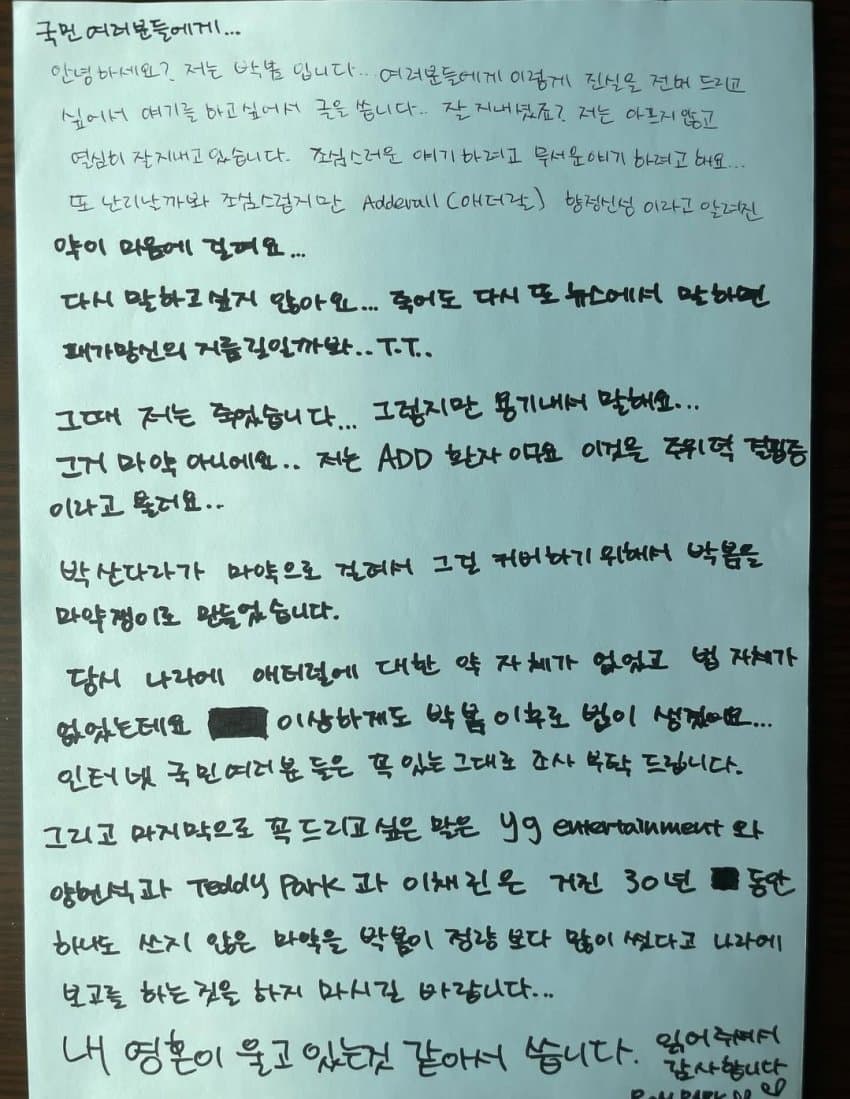 국민 여러분들에게...
안녕하세요? 저는 박봄 입니다... 여러분들에게 이렇게 진실을 전해 드리고
싶어서 얘기를 하고싶어서 글을 씁니다.. 잘 지내셨죠? 저는 아프지 않고
열심히 잘지내고 있습니다. 조심스러운 얘기 하려고 무서운얘기 하려고 해요...
또 난리날까봐 조심스럽지만 Adderall (애더럴) 향정신성 이라고 알려진
약이 마음에 걸려요...
다시 말하고싶지 않아요... 죽어도 다시 또 뉴스에서 말하면
패가망신의 지름길일까봐..T.T..
그때 저는 죽었습니다... 그렇지만 용기내서 말해요...
그거 마약 아니에요.. 저는 ADD 환자 이구요 이것은 주위력 결핍증
이라고 불려요..
박산다라가 마약으로 걸려서 그걸 커버하기 위해서 박봄을
마약쟁이로 만들었습니다.
당시 나라에 애더럴에 대한 약 자체가 없었고 법 자체가
없었는데요 이상하게도 박봄 이후로 법이 생겼어요...
인터넷 국민여러분 들은 꼭 있는그대로 조사 부탁 드립니다.
그리고 마지막으로 꼭 드리고 싶은 말은 yg entertainment 와
양현석과 Teddy Park 과 이채린은 거진 30년 동안
하나도 쓰지 않은 마약을 박봄이 정량 보다 많이 썼다고 나라에
보고를 하는것을 하지 마시길 바랍니다...
내 영혼이 울고 있는것 같아서 씁니다. 읽어주셔서
감사합니다